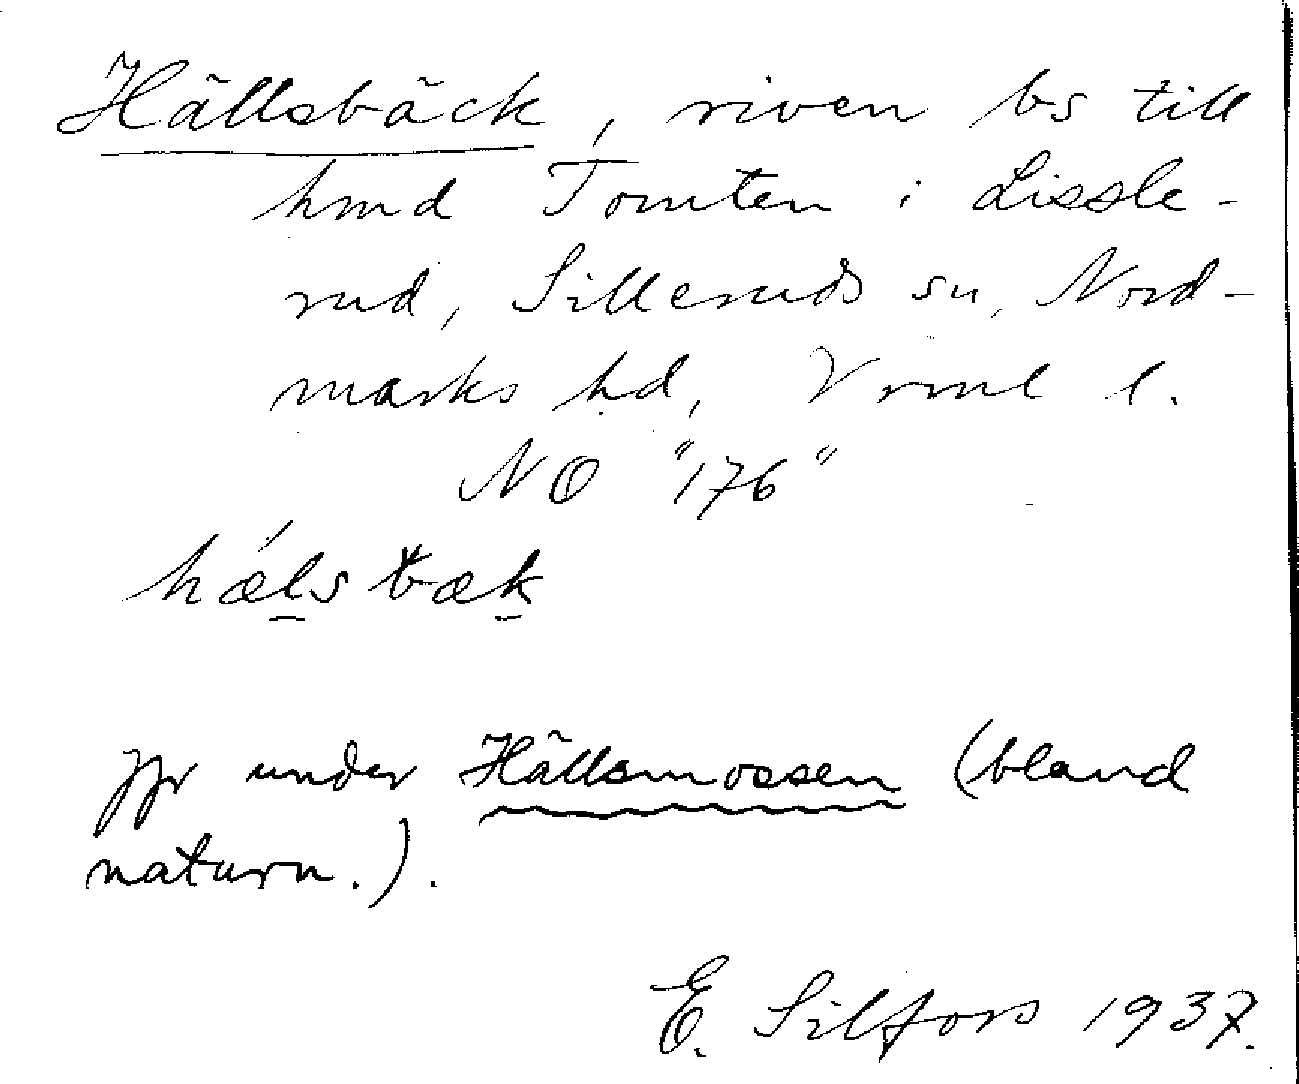 Hällsbäck, riven bs till
hmd Tomten i Lissle-
rud, Silleruds sn, Nord-
marks hd, Vrml l.
NO "176"
hǽlsbæk
Jfr under Hällsmossen (bland
naturn.).
E. Silfors 1937.